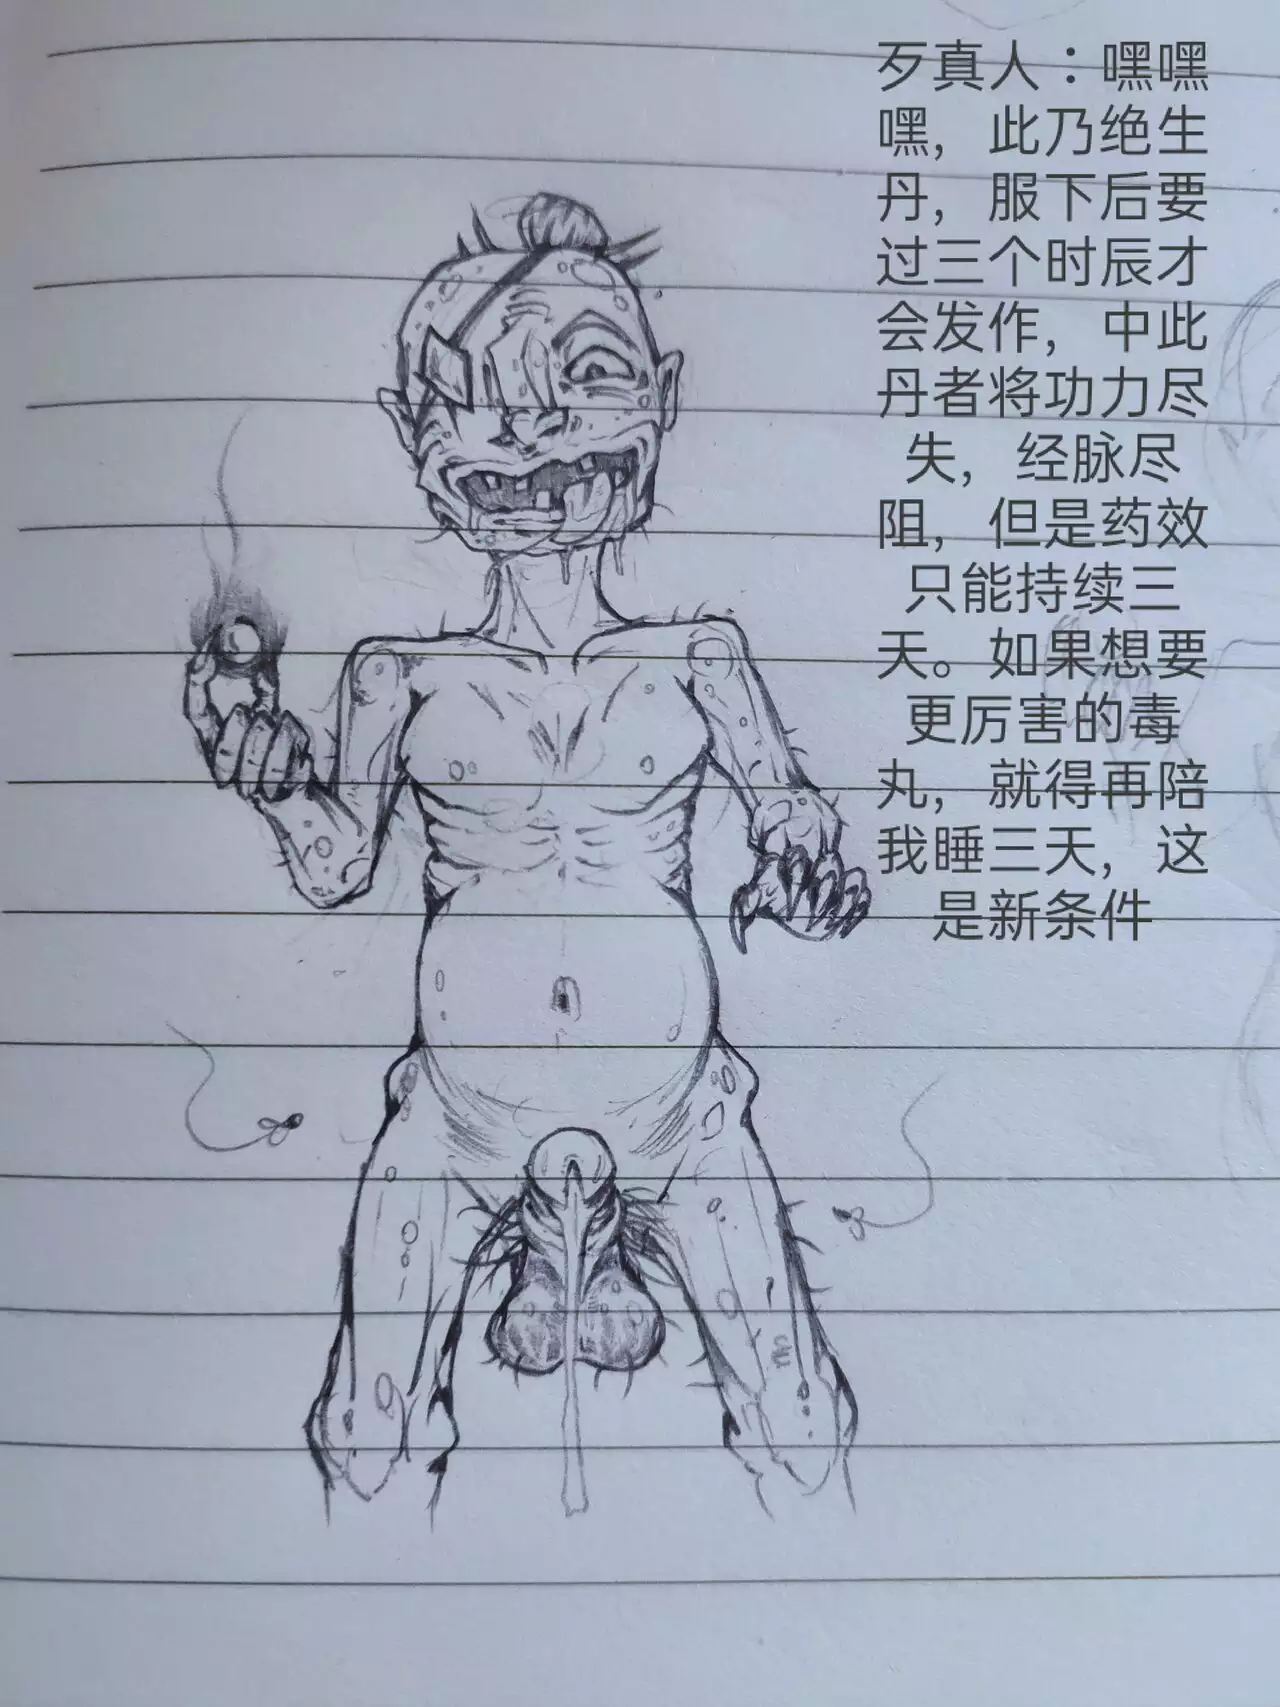 歹真人：嘿嘿
嘿，此乃绝生
丹，服下后要
过三个时辰才
会发作，中此
丹者将功力尽
失，经脉尽
阻，但是药效
只能持续三
天。如果想要
更厉害的毒
丸，就得再陪
我睡三天，这
是新条件